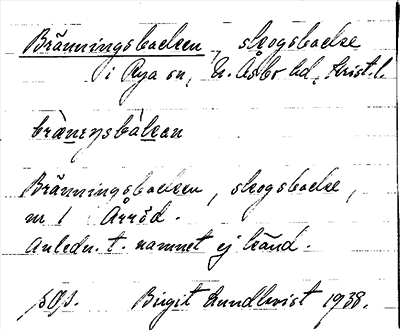 Bränningsbacken, skogsbacke
i Rya sn, N. Åsbo hd, Krist. l.
Bränningsbacken, skogsbacke,
nr 1 Arröd.
Anledn. t. namnet ej känd.
Birgit Lundkvist 1938.